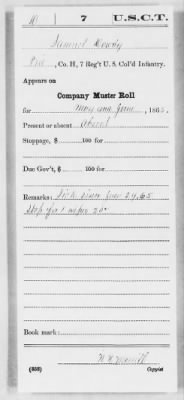 7 U.S.C.T.
Samuel
Co. H, 7 Reg't U. S. Col'd Infantry.
Appears on
Company Muster Roll
for May and June, 186
Present or absent Absent
Stoppage, $ 100 for
Due Gov't, $ 100 for
Remarks: Sick since June 29, 65
Stop for 1
Book mark:
(858) Copyist